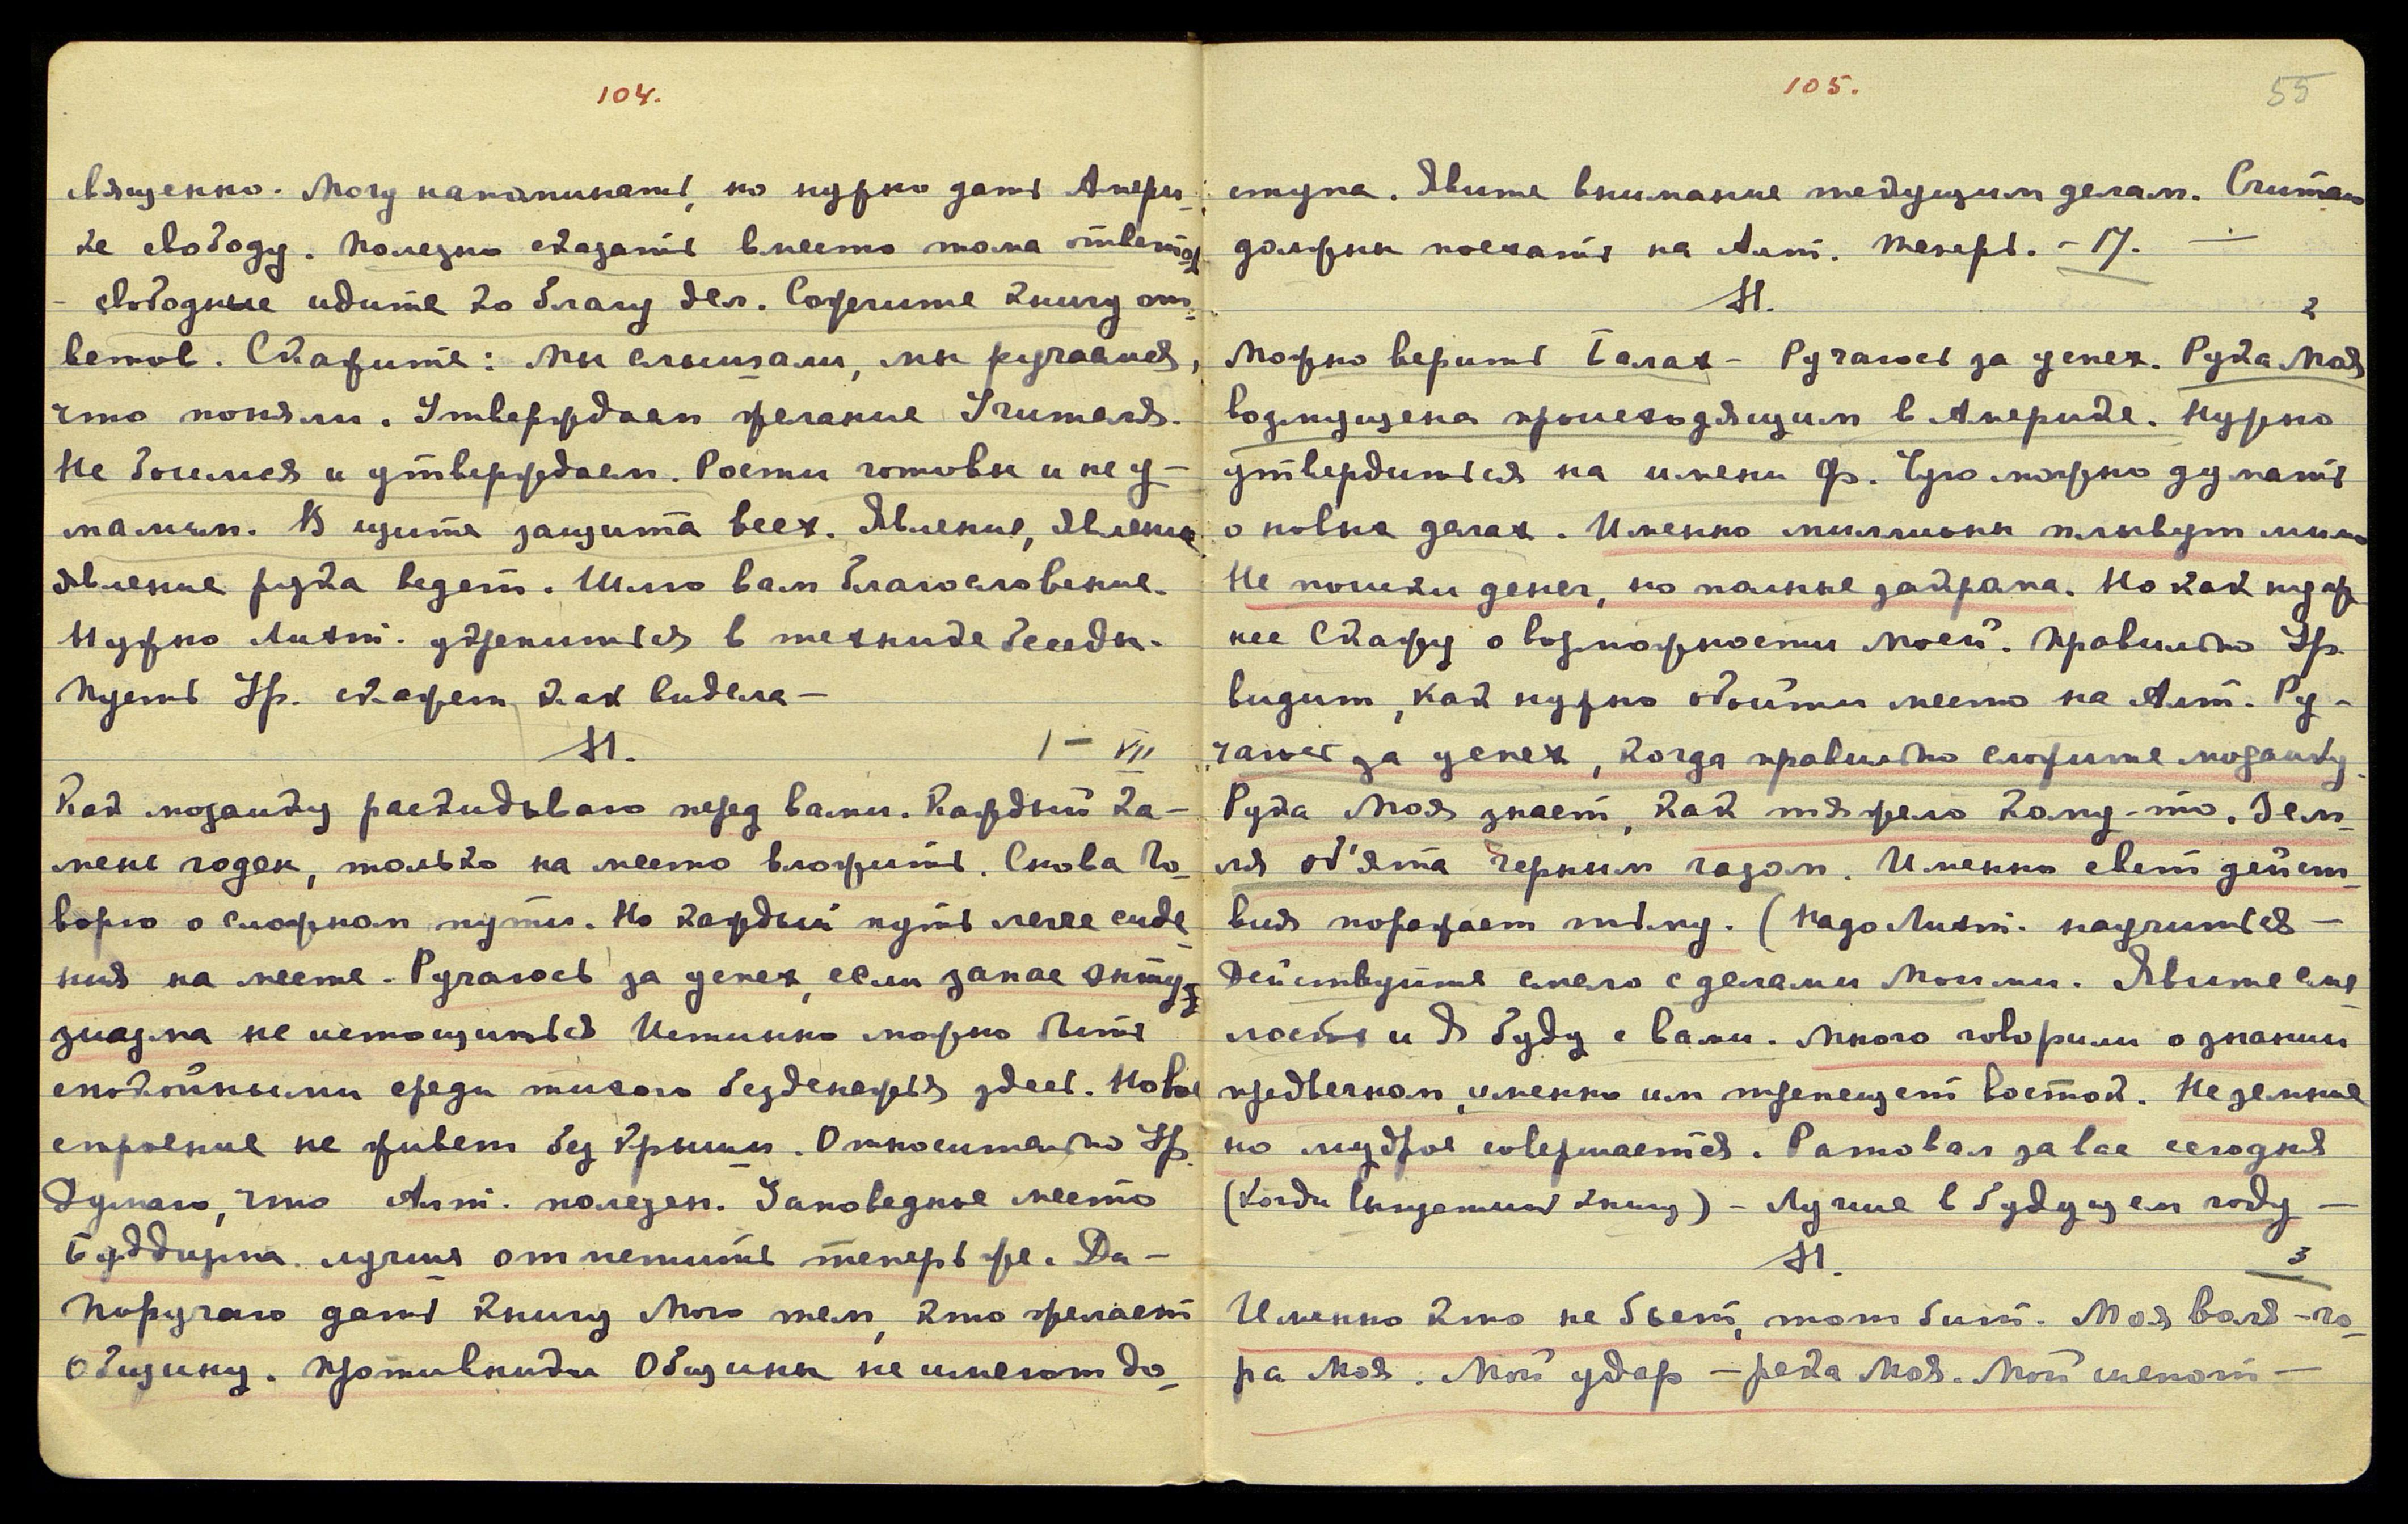 104.
священно. Могу напоминать, но нужно дать Амери-
ке свободу. Полезно сказать вместо тома ответов
- свободные идите ко благу дел. Сожгите книгу от-
ветов. Скажите: мы слышали, мы ручаемся,
что поняли. Утверждаем желание Учителя.
Не боимся и утверждаем. Расти готовы и не у-
малим. В щите защита всех. Явление, явление
явление рука ведет. Шлю вам благословение.
Нужно Лихт. укрепиться в технике беседы.
Пусть Ур. скажет как видела —
1 — VII
Как мозаику раскидываю перед вами. Каждый ка-
мень годен, только на место вложить. Снова го-
ворю о сложном пути. Но каждый путь легче сиде-
ния на месте. Ручаюсь за успех, если запас энту-
зиазма не истощиться Истинно можно быть
спокойными среди тихого безденежья здесь. Новое
строение не живет без крыши. Относительно Ур.
Думаю, что Алт. полезен. Заповедное место
Буддизма лучше отметить теперь же. Да —
Поручаю дать книгу Мою тем, кто желает
Общину. Противники Общины не имеют до-
105.
55
ступа. Явите внимание текущим делам. Считаю
должны поехать на Алт. теперь. - 17. —
2
Можно верить Балах - Ручаюсь за успех. Рука Моя
возмущена происходящим в Америке. Нужно
утвердиться на имени Ф. Чую можно думать
о новых делах. Именно миллионы плывут мимо
Не поиски денег, но полные закрома. Но как нуж
нее Скажу о возможности Моей. Правильно Ур.
видит, как нужно обойти место на Алт. Ру-
чаюсь за успех, когда правильно сложите мозаику.
Рука Моя знает, как тяжело кому-то. Зем-
ля об'ята черным газом. Именно свет дейст-
вия поражает тьму. (Надо Лихт. научиться —
Действуйте смело с делами Моими. Явите сме-
лость и Я буду с вами. Много говорили о знании
предвечном, именно им трепещет восток. Не земные
но мудрое совершается. Ратовал за вас сегодня
(Когда выпустить книгу) - Лучше в будущем году —
3
Именно кто не бьет, тот бит. Моя воля - го-
ра Моя. Мой удар — река Моя. Мой шепот —